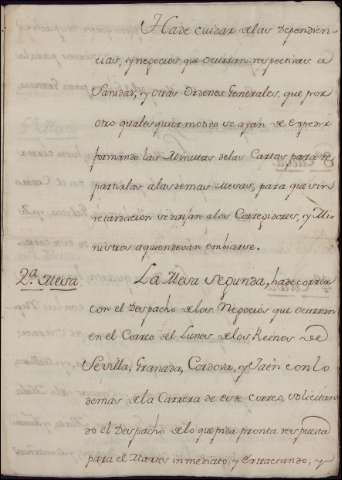 Ha de cuidar de las Dependen-
cias, y negocios que ocurran respectivos a
Sanidad, y otras Ordenes Generales, que por
otro qualesquier motivo se ayan de expedir
formando las Minutas de las Cartas, para re
partirlas a las demas Mesas, para que sin
retardacion se dirijan a los Corregidores, y Mi-
nistros a quien devan embiarse.
2ª Mesa La Mesa segunda, ha de correr
con el Despacho de los Negocios que ocurran
en el Correo del Lunes de los Reinos de
Sevilla, Granada, Cordova, y Jaen con lo
demas de la Carrera de este correo, solicitan
do el Despacho de lo que pida pronta respuesta
para el Martes inmediato, y extractando, y